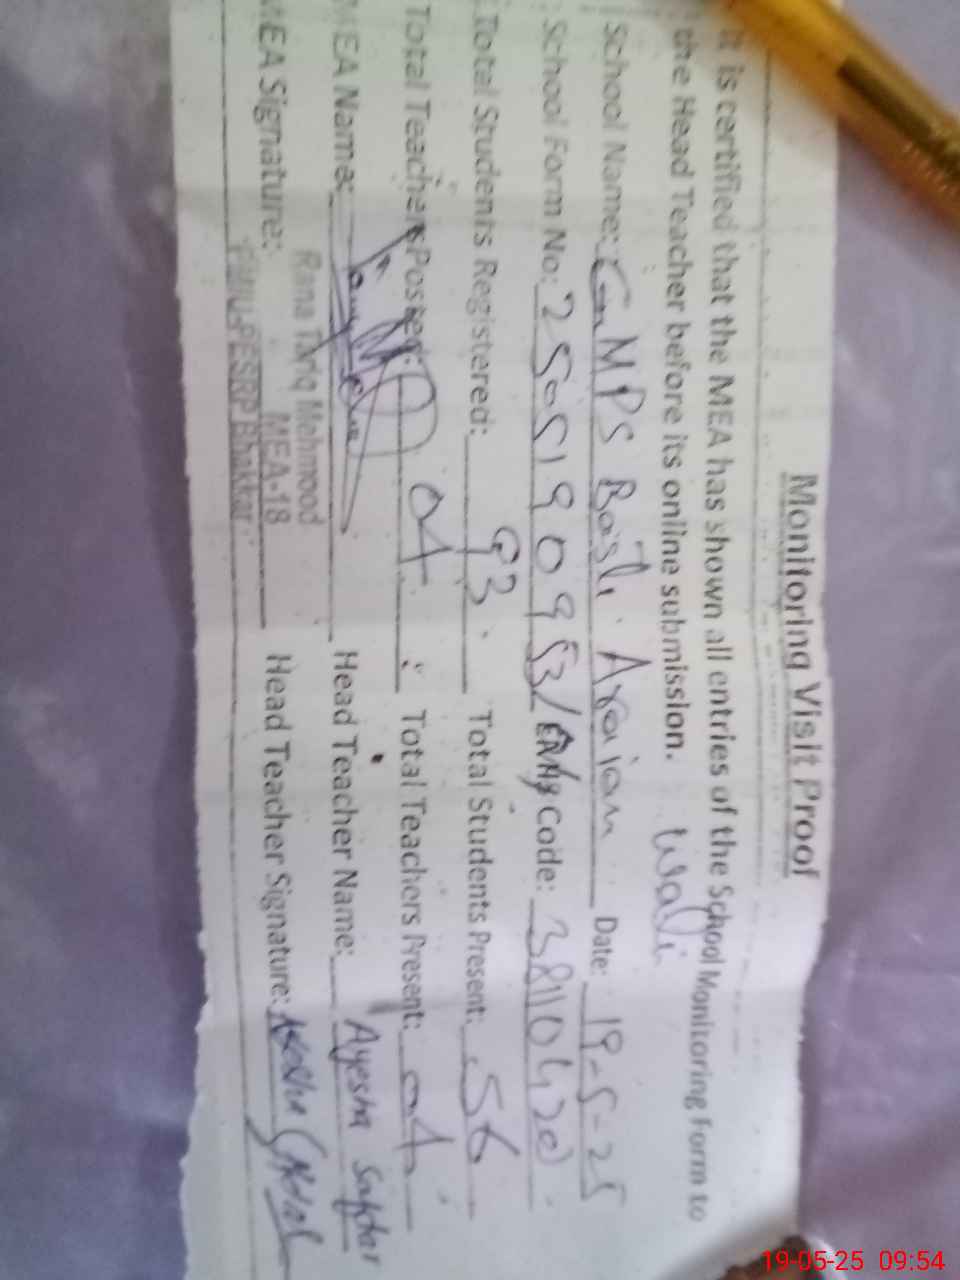 Monitoring Visit Proof
It is certified that the MEA has shown all entries of the School Monitoring Form to
the Head Teacher before its online submission.
Wali
School Name: GMPS Basti Araian Date: 19-5-25
School Form No: Code: 38110420
Total Students Registered: 93 Total Students Present: 56
Total Teachers Posted: 04 Total Teachers Present: 04
MEA Name: Head Teacher Name: Ayesha Safdar
Rana Tariq Mehmood
MEA-18
MEA Signature: Head Teacher Signature:
PMIU-PESRP Bhakkar
19-05-25 09:54